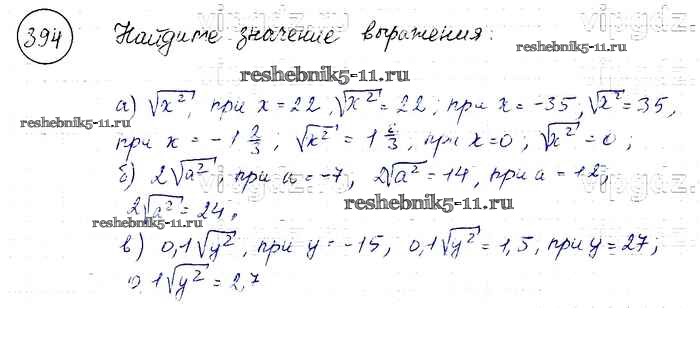 394 Найдите значение выражения:
reshebnik5-11.ru
а) √x², при x = 22, √x² = 22; при x = -35, √x² = 35,
reshebnik5-11.ru
при x = -1 2/3; √x² = 1 2/3, при x=0; √x² = 0;
б) 2√a², при a = -7, 2√a² = 14, при a = 12,
reshebnik5-11.ru
2√a² = 24,
reshebnik5-11.ru
в) 0,1√y², при y = -15, 0,1√y² = 1,5, при y = 27;
0,1√y² = 2,7